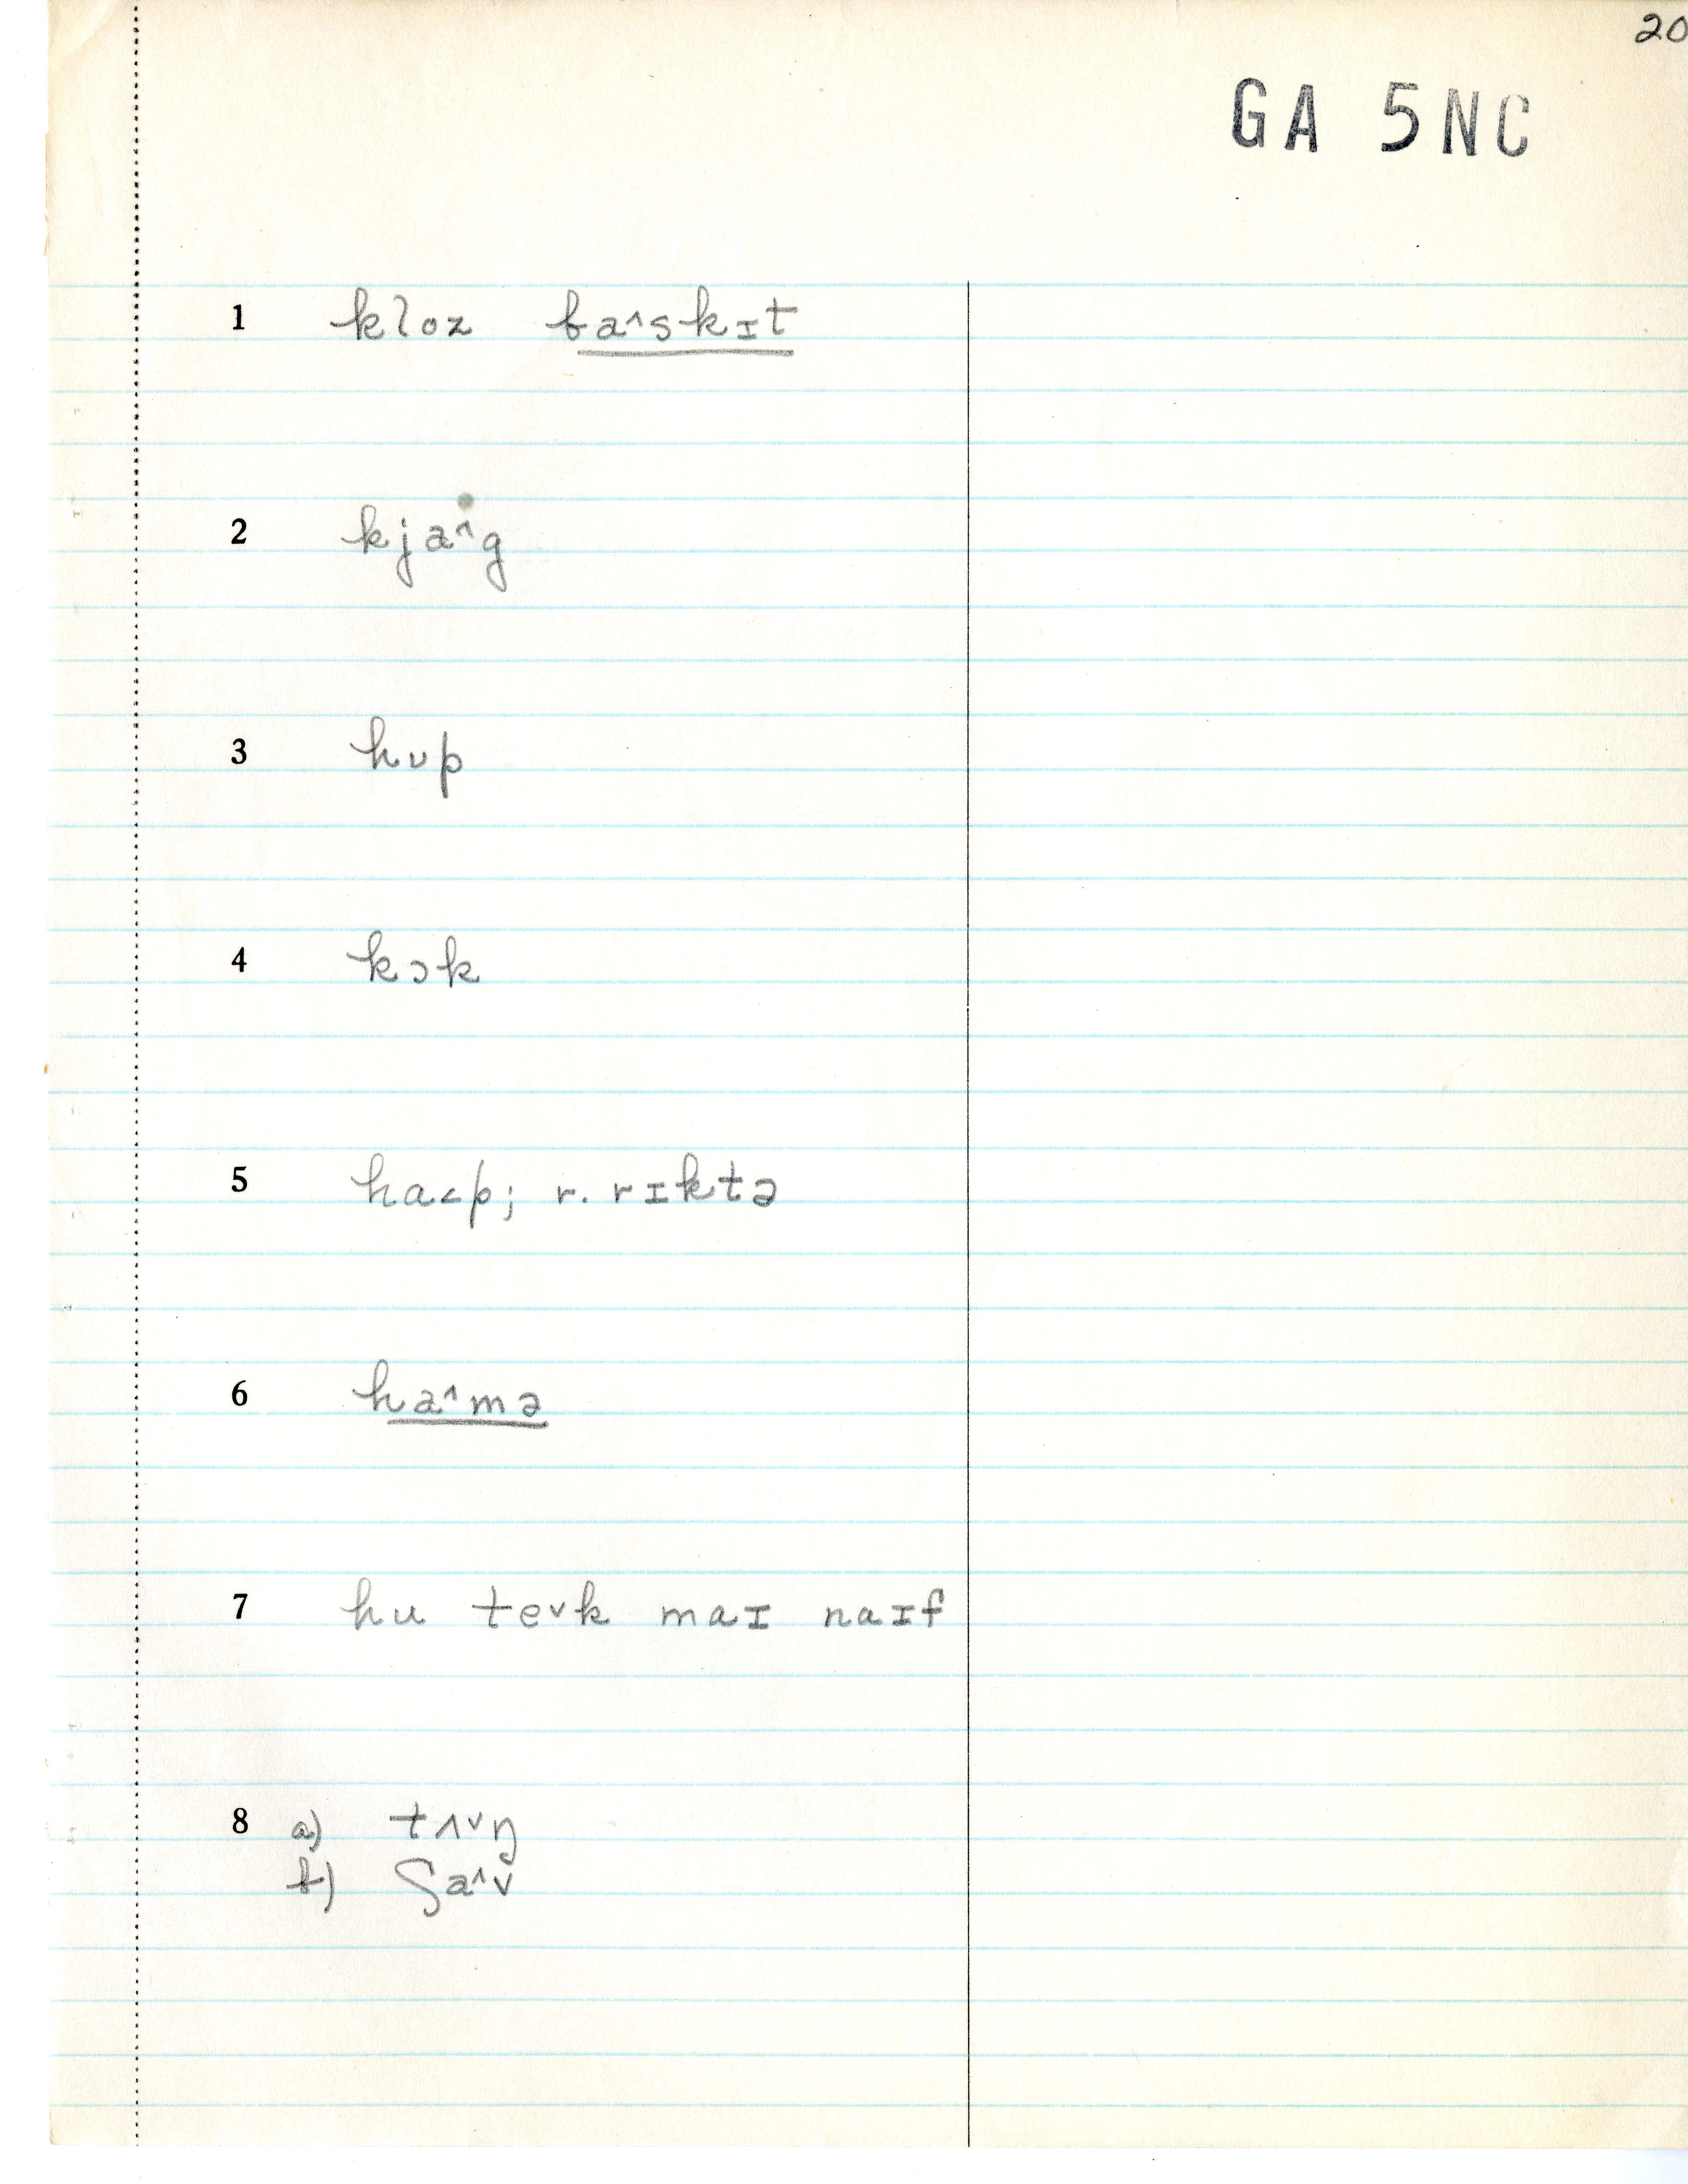 20
GA 5NC
1 kloz ba^skɪt
2 kja^g
3 hʊp
4 kɔk
5 ha<p; r. rɪktə
6 ha^mə
7 hu te˅k maɪ naɪf
8 a) tʌ˅ŋ
b) ʃa^v